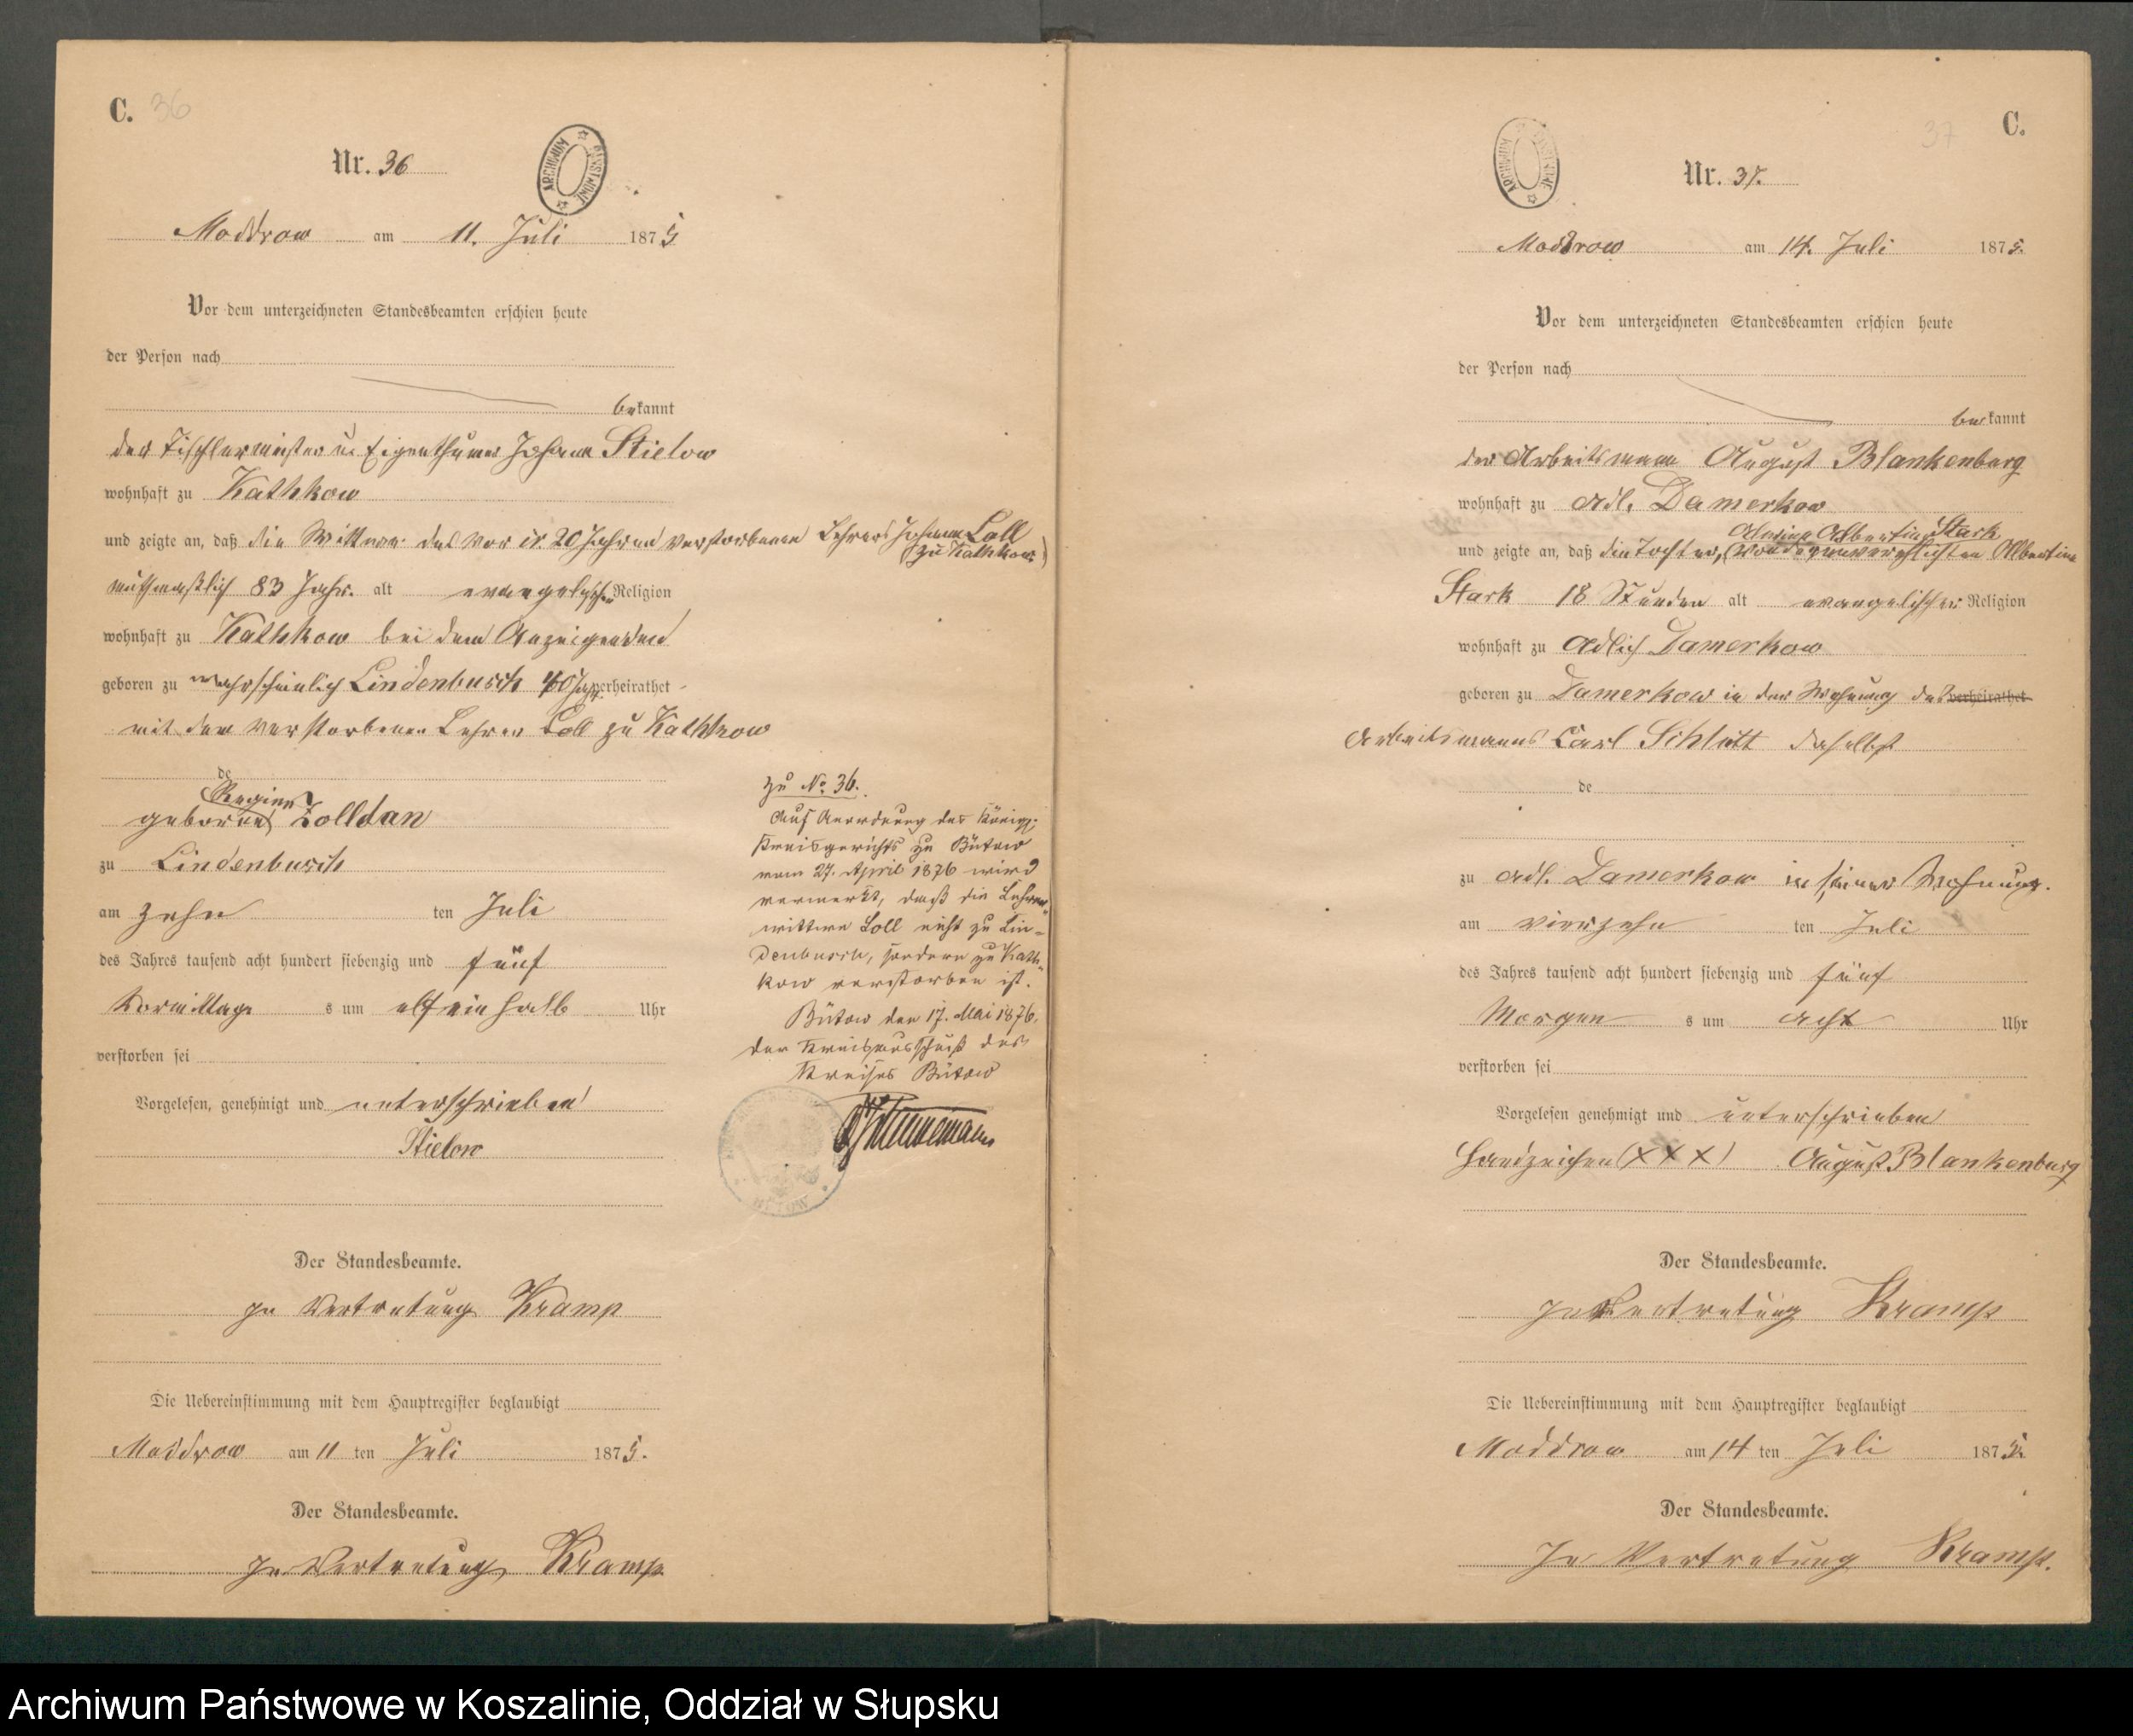 C. 36
Nr. 36
ARCHIWUM PAŃSTWOWE
Moddrow am 11. Juli 1875
Vor dem unterzeichneten Standesbeamten erschien heute
der Person nach
bekannt
der Tischlermeister u. Eigenthümer Johann Stielow
wohnhaft zu Kathkow
und zeigte an, daß die Wittwe des vor ir. 20 Jahren verstorbenen Lehrers Johann Loll
(zu Kathkow)
muthmaßlich 83 Jahr. alt evangelischen Religion
wohnhaft zu Kathkow bei dem Anzeigenden
geboren zu wahrscheinlich Lindenbusch 40 Jahr verheirathet
mit dem verstorbenen Lehrer Loll zu Kathkow
de
Regine
geborene Zolldan
zu Lindenbusch
am zehn ten Juli
des Jahres tausend acht hundert siebenzig und fünf
Vormittags um elf ein halb Uhr
verstorben sei
Vorgelesen, genehmigt und unterschrieben
Stielow
Der Standesbeamte.
In Vertretung Kramp
Die Uebereinstimmung mit dem Hauptregister beglaubigt
Moddrow am 11 ten Juli 1875.
Der Standesbeamte.
In Vertretung Kramp
zu No. 36.
Auf Anordnung des Königl.
Kreisgerichts zu Bütow
vom 27. April 1876 wird
vermerkt, daß die Lehrer-
wittwe Loll nicht zu Lin-
denbusch, sondern zu Kath-
kow verstorben ist.
Bütow den 17. Mai 1876.
der Kreisausschuß des
Kreises Bütow
BÜTOW
C.
37
Nr. 37.
ARCHIWUM PAŃSTWOWE
Moddrow am 14. Juli 1875.
Vor dem unterzeichneten Standesbeamten erschien heute
der Person nach
bekannt
der Arbeitsmann August Blankenburg
wohnhaft zu Adl. Damerkow
Albertine Stark
und zeigte an, daß die Tochter, (von der unverehlichten Albertine
Stark 18 Stunden alt evangelischer Religion
wohnhaft zu Adlich Damerkow
geboren zu Damerkow in der Wohnung des verheirathet
Arbeitsmanns Carl Schlutt daselbst
de
zu Adl. Damerkow in seiner Wohnung.
am vierzehn ten Juli
des Jahres tausend acht hundert siebenzig und fünf
Morgens um acht Uhr
verstorben sei
Vorgelesen genehmigt und unterschrieben
Handzeichen (XXX) August Blankenburg
Der Standesbeamte.
In Vertretung Kramp
Die Uebereinstimmung mit dem Hauptregister beglaubigt
Moddrow am 14 ten Juli 1875.
Der Standesbeamte.
In Vertretung Kramp.
Archiwum Państwowe w Koszalinie, Oddział w Słupsku